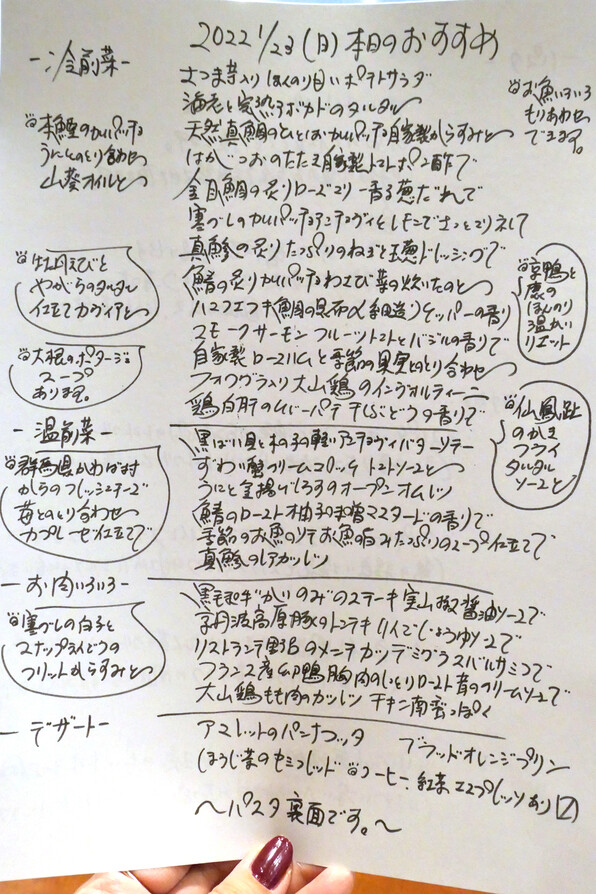 2022 1/23 (日) 本日のおすすめ
-冷前菜-
さつま芋入りほんのり甘いポテトサラダ
海老と完熟アボカドのタルタル
天然真鯛のといとカルパッチョ自家製からすみと
はがつおのたたき自家製トマトポン酢で
金目鯛の炙りローズマリー香る葱だれで
寒ぶしのカルパッチョアンチョヴィとレモンでさっとマリネして
真鯵の炙りたっぷりのねぎと玉葱ドレッシングで
鰆の炙りカルパッチョわさび菜の炊いたのと
ハマフエフキ鯛の昆布〆(細造り)ケッパーの香り
スモークサーモンフルーツトマトとバジルの香りで
自家製ロースハムと季節の果実とのとり合わせ
フォワグラ入り大山鶏のインヴォルティーニ
鶏白肝のムパーパテ干しぶどうの香りで
本鰹のカルパッチョ
うにとのとり合わせ
山葵オイルと
お魚いろいろ
もりあわせ
できます。
牡丹えびと
やがらのタルタル
仕立てカヴィアと
大根のポタージュ
スープ
あります。
京鴨と
鹿の
ほんのり
温かい
リエット
-温前菜-
黒ばい貝と木の子の軽いアンチョヴィバターソテー
ずわい蟹クリームコロッケトマトソースと
うにと釜揚げしらすのオープンオムレツ
鰆のロースト柚子味噌マスタードの香りで
季節のお魚のソテお魚の白みたっぷりのスープ仕立てで
真鯵のレアカツレツ
仙鳳趾
のかき
フライ
タルタル
ソースと
群馬県かわば村
からのフレッシュチーズ
苺とのとり合わせ
カプレーゼ仕立てで
-お肉いろいろ-
黒毛和牛"かいのみ"のステーキ実山椒醤油ソースで
子丹波高原豚のトンテキリイでじょうゆソースで
リストランテ野呂のメーテカツデミグラスバルサミコで
フランス産仔鴨胸肉のしっとりロースト苺のクリームソースで
大山鶏もも肉のカツレツチキン南蛮っぽく
寒ぶしの白子と
スナップライどうの
フリットからすみと
-デザート-
アマレットのパンナコッタ ブラッドオレンジプリン
ほうじ茶のセミフレッド コーヒー、紅茶、エスプレッソあり
～パスタ裏面です。～